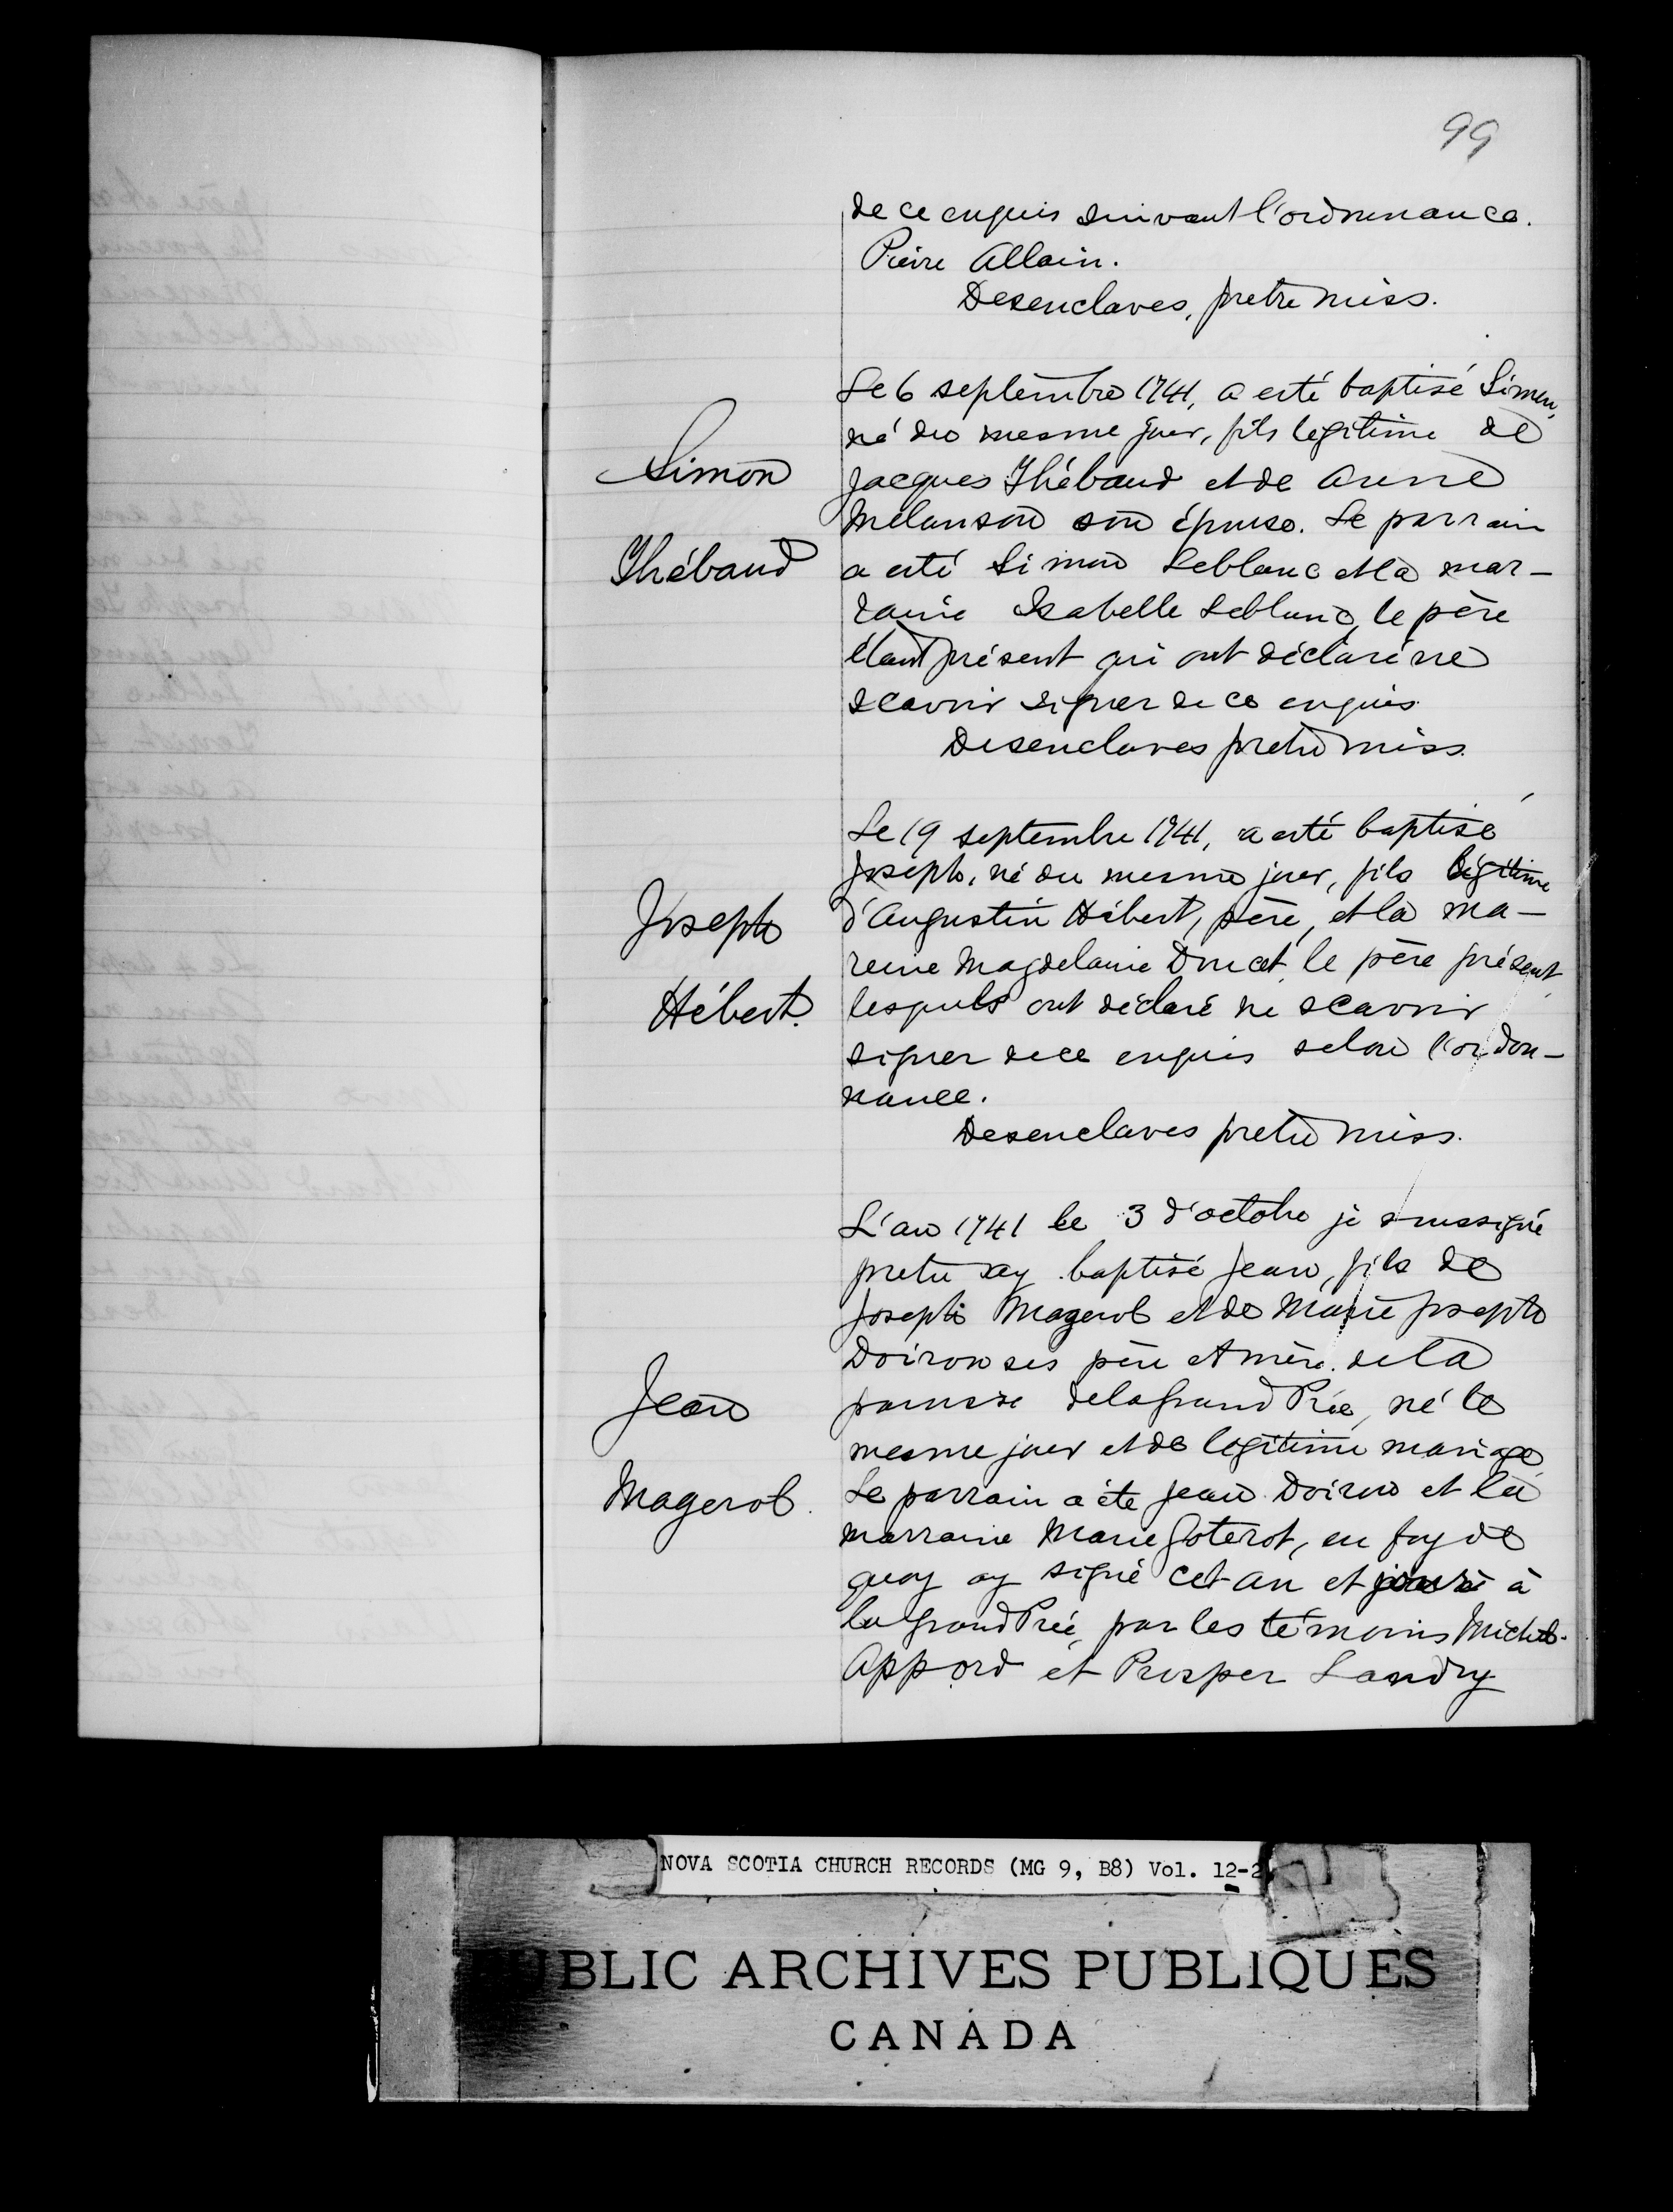 99
de ce enquis suivant l'ordonnance.
Pierre Allain.
Desenclaves, pretre miss.
Le 6 septembre 1741, a esté baptisé Simon,
né du mesme jour, fils legitime de
Simon
Jacques Thébaud et de Anne
Melanson son épouse. Le parrain
Thébaud
a esté Simon Leblanc et la mar-
raine Isabelle Leblanc, le père
étant présent qui ont déclaré ne
scavoir signer de ce enquis
Desenclaves pretre miss.
Le 19 septembre 1741, a esté baptisé
Joseph, né du mesme jour, fils légitime
Joseph
d'Augustin Hébert, père, et la ma-
reine Magdelaine Doucet, le père présent,
Hébert.
lesquels ont déclaré ne scavoir
signer de ce enquis selon l'ordon-
nance.
Desenclaves pretre miss.
L'an 1741 le 3 d'octobre je soussigné
pretre ay baptisé Jean, fils de
Joseph Magerol et de Marie Joseph
Doiron ses père et mère de la
Jean
paroisse de la grand Prée, né le
mesme jour et de legitime mariage
Magerol.
Le parrain a éte Jean Doiron et la
marraine Marie Goterot, en foy de
quoy ay signé cet an et jour à
la grand Prée, par les témoins Michel
Appord et Prosper Landry
NOVA SCOTIA CHURCH RECORDS (MG 9, B8) Vol. 12-2
PUBLIC ARCHIVES PUBLIQUES
CANADA